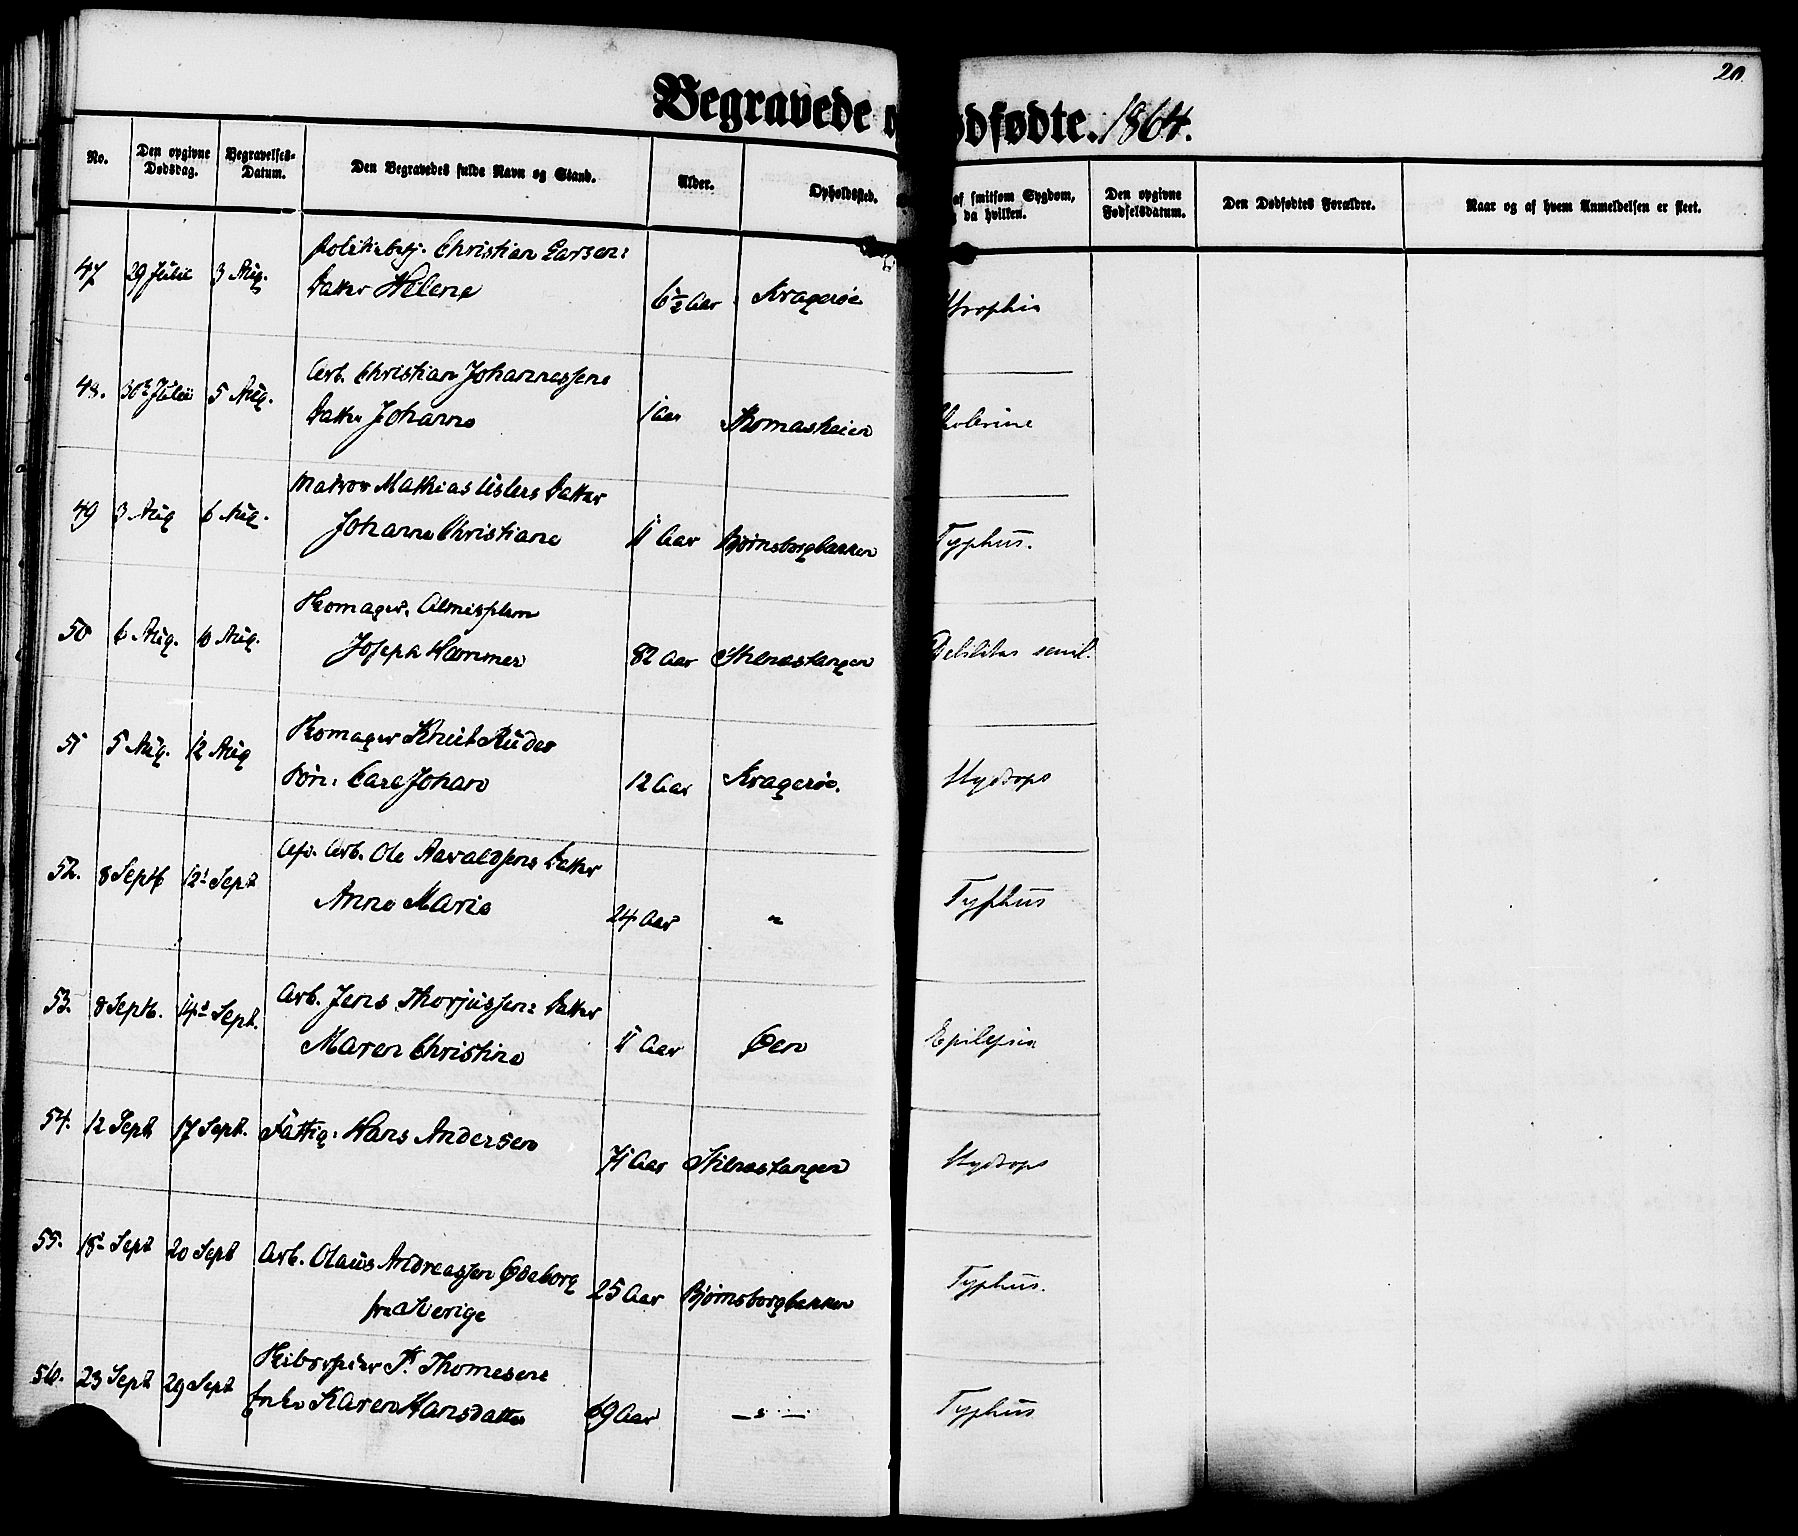 20.
Begravede ødfødte. 1864.
No.
Den opgivne Dødsdag.
Begravelses-Datum.
Den Begravedes fulde Navn og Stand.
Alder.
Opholdssted.
af smitsom Sygdom, da hvilken.
Den opgivne Fødselsdatum.
Den Dødfødtes Forældre.
Naar og af hvem Anmeldelsen er skeet.
47 29 Julii 3 Aug. Politibetj. Christian Larsens
Datter Helene 6½ Aar Kragerøe Atrophia
48. 30te Julii 5 Aug. Arb. Christian Johannessens
Datter Johanne 1 Aar Thomasheien Cholerine
49 3 Aug 6 Aug. Matros Mathias Uslers Datter
Johanne Christiane 11 Aar Bjørnsborgbakken Typhus.
50 6 Aug. 10 Aug. Skomager, Almisselem
Joseph Hammer 82 Aar Stilnæstangen Debilitas senil.
51 5 Aug. 12 Aug Skomager Knut
Søn: Carl Johan 12 Aar Kragerøe. Hydrops
52. 8 Septb 12t Sept Afd. Arb. Ole Aavaldsens Datter
Anne Marie 24 Aar " Typhus
53. 8 Septb. 14de Sept. Arb. Jens Thorjussens Datter
Maren Christine 11 Aar Øen Epilepsia
54. 12 Sept 17 Sept. Fattig: Hans Andersen
71 Aar Stilnæstangen Hydrops
55. 18t Sept 20 Sept Arb. Olaus Andreassen Ødeborg
fra Sverige 25 Aar Bjørnsborgbakken Typhus.
56. 23 Sept 29 Sept Thomesens
Enke Karen Hansdatter 69 Aar — " — Typhus